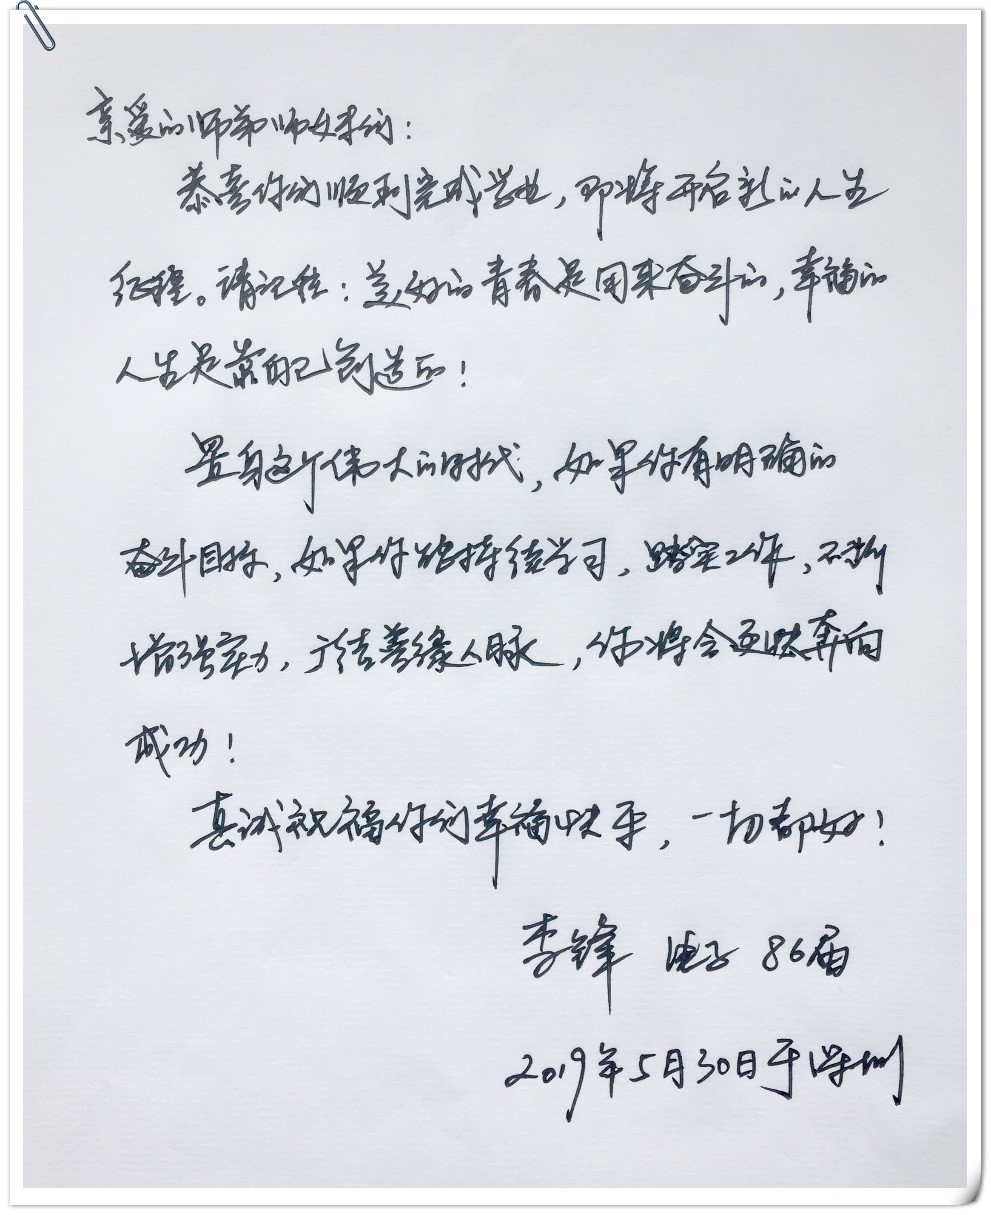 亲爱的师弟师妹们：
恭喜你们顺利完成学业，即将开启新的人生
征程。请记住：美好的青春是用来奋斗的，幸福的
人生是靠自己创造的！
置身这个伟大的时代，如果你有明确的
奋斗目标，如果你能持续学习，踏实工作，不断
增强实力，广结善缘人脉，你将会更快奔向
成功！
真诚祝福你们幸福快乐，一切都好！
李锋 电子 86届
2019年5月30日于深圳